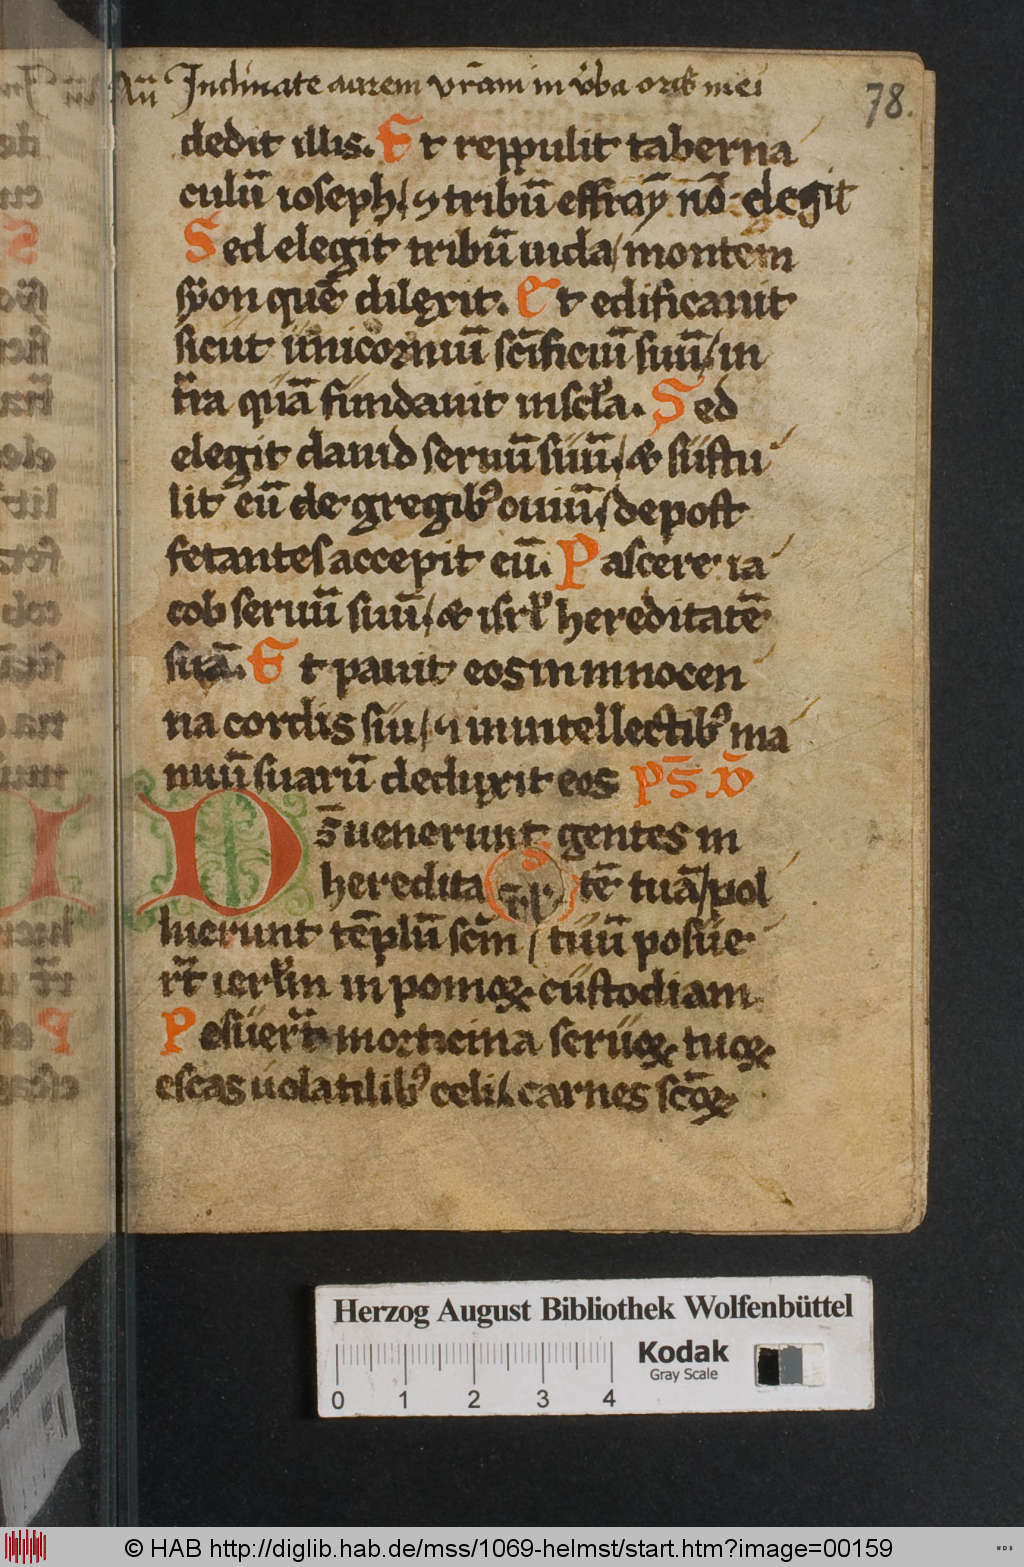 Añ Inclinate aurem vr̄am in v̓ba oris mei
78.
dedit illis. Et reppulit taberna
culū ioseph / ⁊ tribū effraÿ nō elegit
Sed elegit tribū iuda / montem
sẏon quē dilexit. Et edificauit
sicut unicorniū sc̄ificiū suū / in
t̄ra quā fundauit in scła. Sed
elegit dauid seruū suū / & sustu
lit eū de gregibꝰ ouiū / de post
fetantes accepit eū. Pascere ia
cob seruū suū / & isrł hereditatē
suā. Et pauit eos in innocen
na cordis sui / ⁊ in intellectibꝰ ma
nuū suarū deduxit eos p̄s d̄d
Ds̄ uenerunt gentes in
heredita tē tuā / pol
luerunt tēplū sc̄m / tuū posue
rt̄ ierłm in pomoꝝ custodiam
Posuer̄t morticina seruoꝝ tuoꝝ
escas uolatilibꝰ celi / carnes sc̄oꝝ
Herzog August Bibliothek Wolfenbüttel
Kodak
Gray Scale
0 1 2 3 4
© HAB http://diglib.hab.de/mss/1069-helmst/start.htm?image=00159